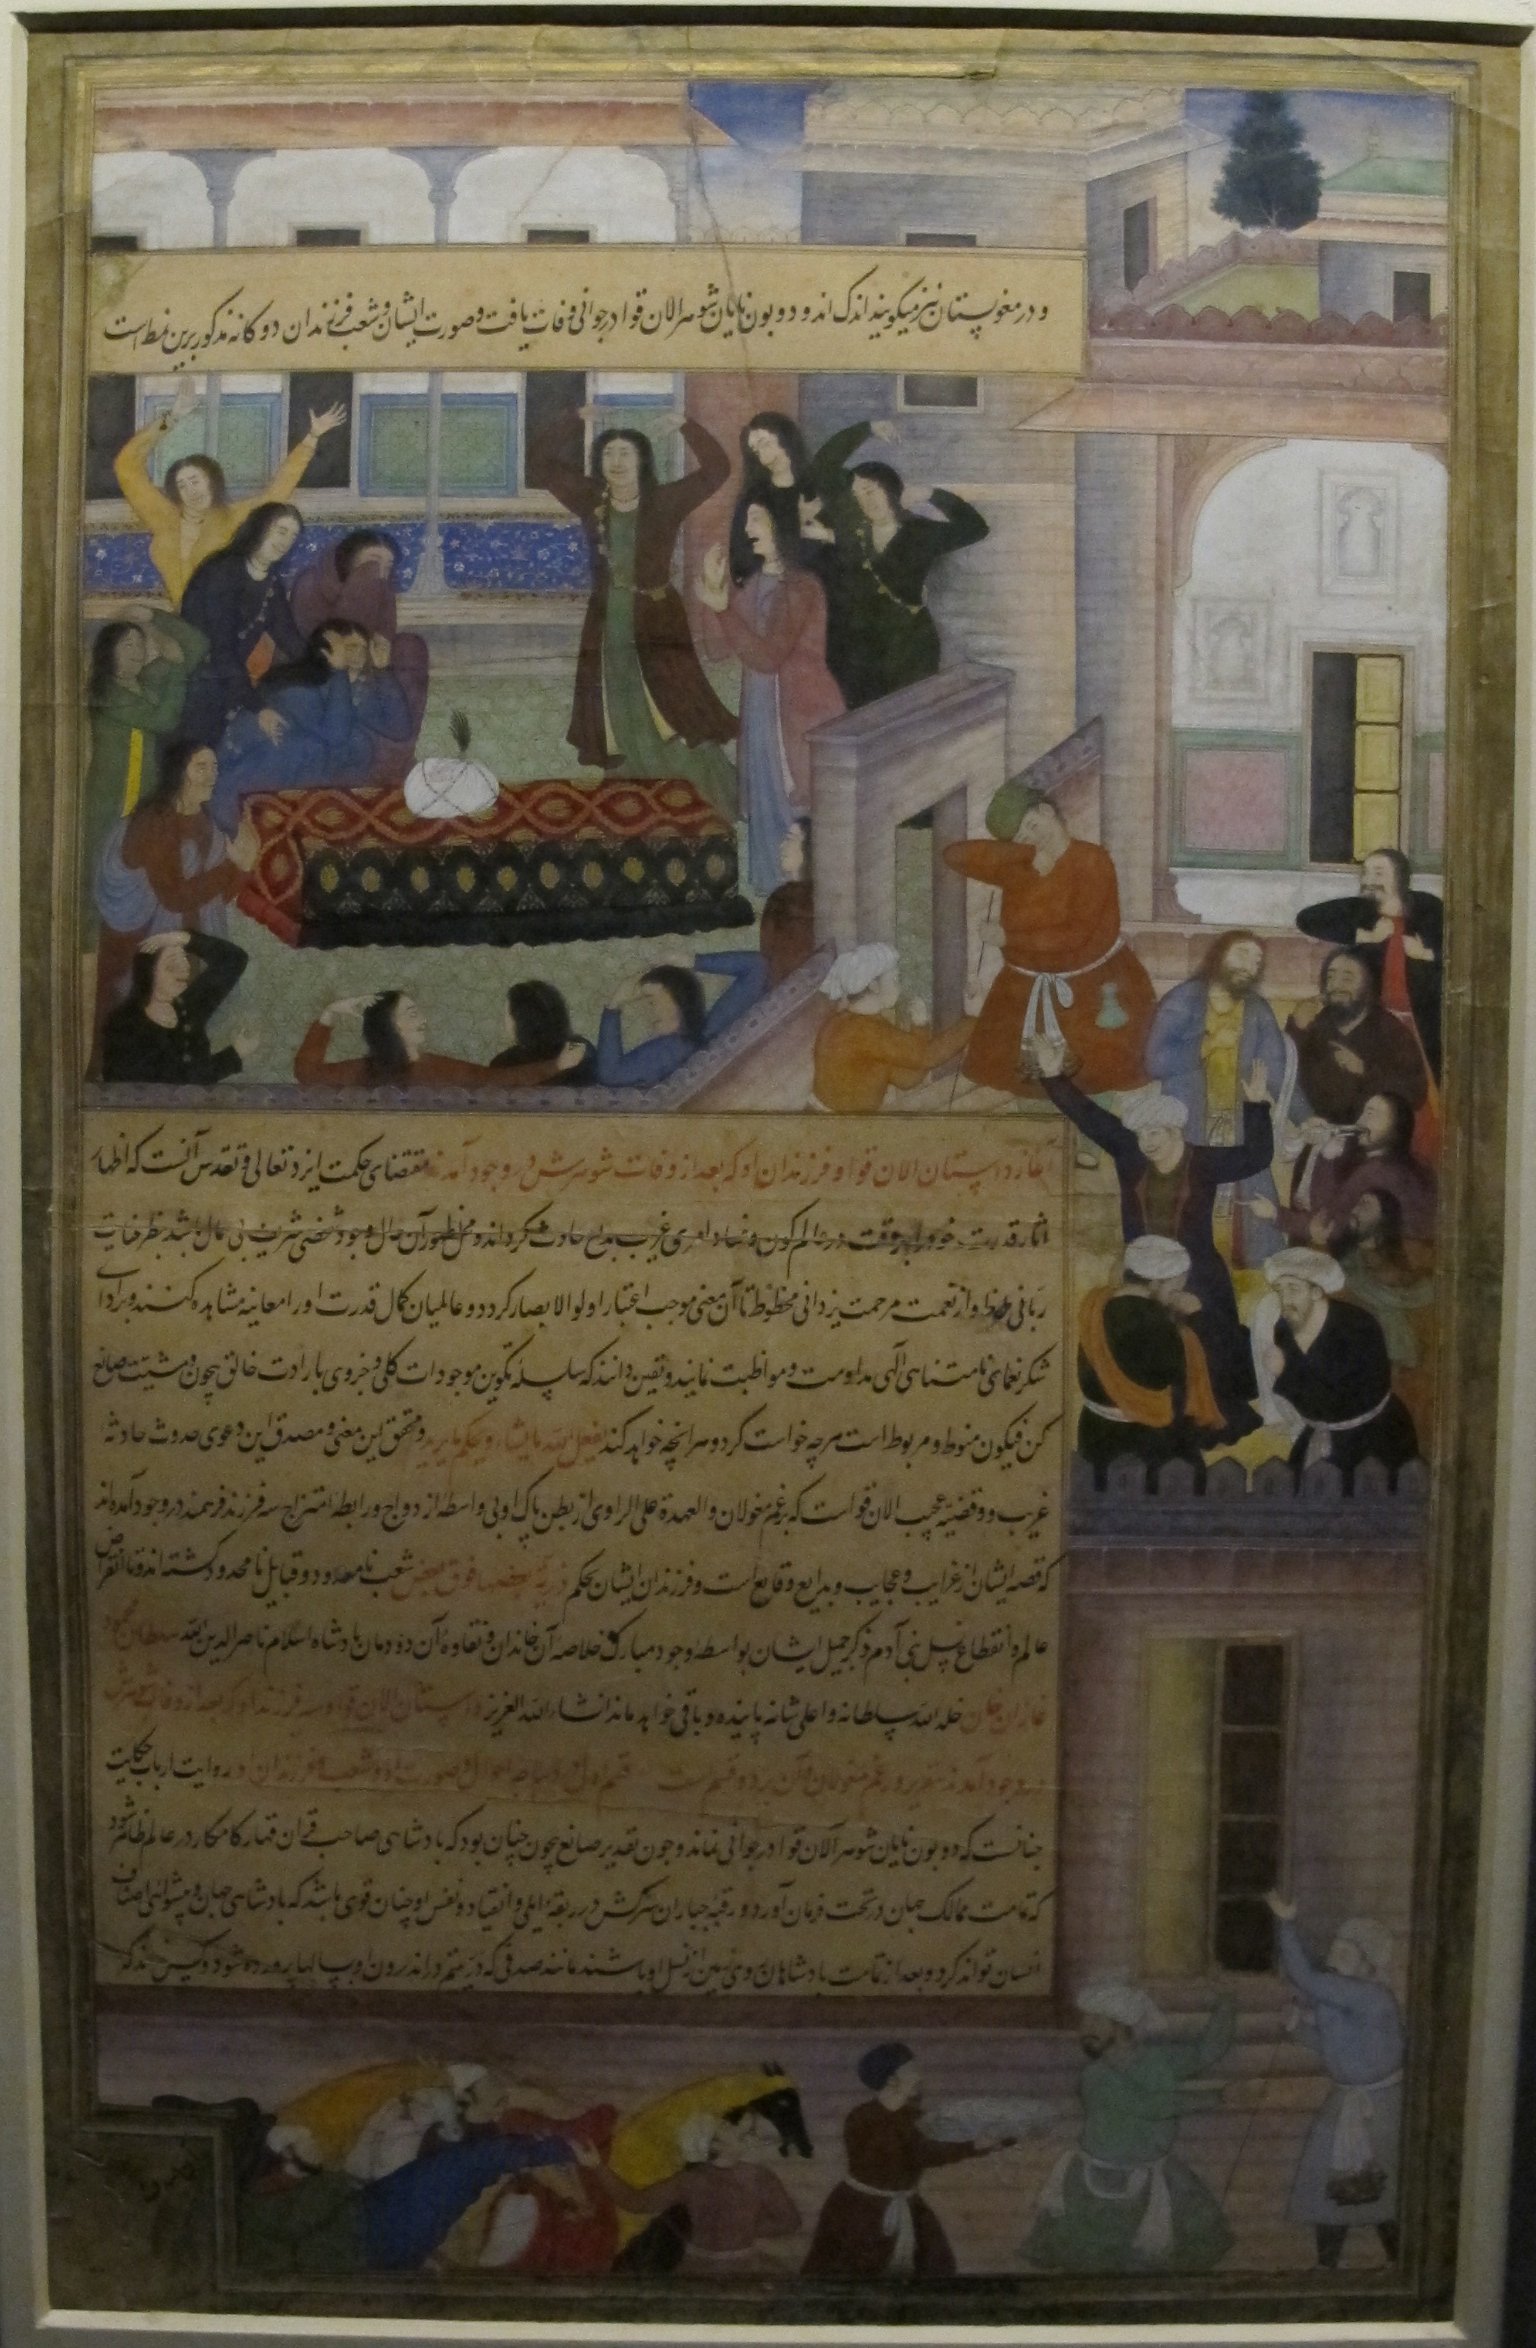 و در مغولستان نیز میگویند اندک اند و دوبون بایان شوهر الان قوا در جوانی وفات یافت و صورت ایشان و شعب فرزندان دوکانه مذکور برین نمط است
آغاز داستان الان قوا و فرزندان او که بعد از وفات شوهرش در وجود آمدند مقتضای حکمت ایزد تعالی و تقدس آنست که اظهار
آثار قدرت خود را هر وقت در عالم کون و فساد امری غریب بدیع حادث کرداند و محل ظهور آن حال وجود شخصی شریف بی همال باشد بنظر عنایت
ربانی ملحوظ و از نعمت مرحمت یزدانی محظوظ تا آن معنی موجب اعتبار اولو الابصار کردد و عالمیان کمال قدرت او را معاینه مشاهده کنند و برادای
شکر نعمای نامتناهی الهی مداومت و مواظبت نمایند و یقین دانند که سلسله تکوین موجودات کلی و جزوی بارادت خالق بیچون و مشیت صانع
کن فیکون منوط و مربوط است هرچه خواست کرد و هرانچه خواهد کند یفعل الله ما یشاء و یحکم ما یرید و محقق این معنی و مصدق این دعوی حدوث حادثه
غریب و قضیه عجیب الان قواست که بزعم مغولان والعمدة علی الراوی از بطن پاک او بی واسطه ازدواج و رابطه امتزاج سه فرزند فرهمند در وجود آمده اند
که قصه ایشان از غرایب و عجایب و بدایع وقایع است و فرزندان ایشان بحکم ذریة بعضها فوق بعض شعب نامعدود و قبایل نامحدود کشته اند و تا انقراض
عالم و انقطاع نسل بنی آدم ذکر جمیل ایشان بواسطه وجود مبارک خلاصه آن خاندان و نقاوه آن دودمان پادشاه اسلام ناصر الدین الله سلطان محمود
غازان خان خلد الله سلطانه و اعلی شانه پاینده و باقی خواهد ماند انشاء الله العزیز داستان الان قوا و سه فرزند او که بعد از وفات شوهرش
در وجود آمدند بتقریر و زعم مغولان و آن بر دو قسم است قسم اول در دیباجه احوال و صورت او و شعب فرزندان او روایت ارباب حکایت
چنانست که دوبون بایان شوهر الان قوا در جوانی نماند و چون تقدیر صانع بیچون چنان بود که پادشاهی صاحب قران قهار کامکار در عالم ظاهر شود
که تمامت ممالک جهان در تحت فرمان آورد و رقبه جباران سرکش در ربقه ایلی و انقیاد و نفس او چنان قوی باشد که پادشاهی جهان و پیشوائی اصناف
انسان تواند کرد و بعد از تمامت پادشاهان روی زمین از نسل او باشند مانند صدفی که در یتیم در اندرون او بسالها پرورده شود و کس نداند که